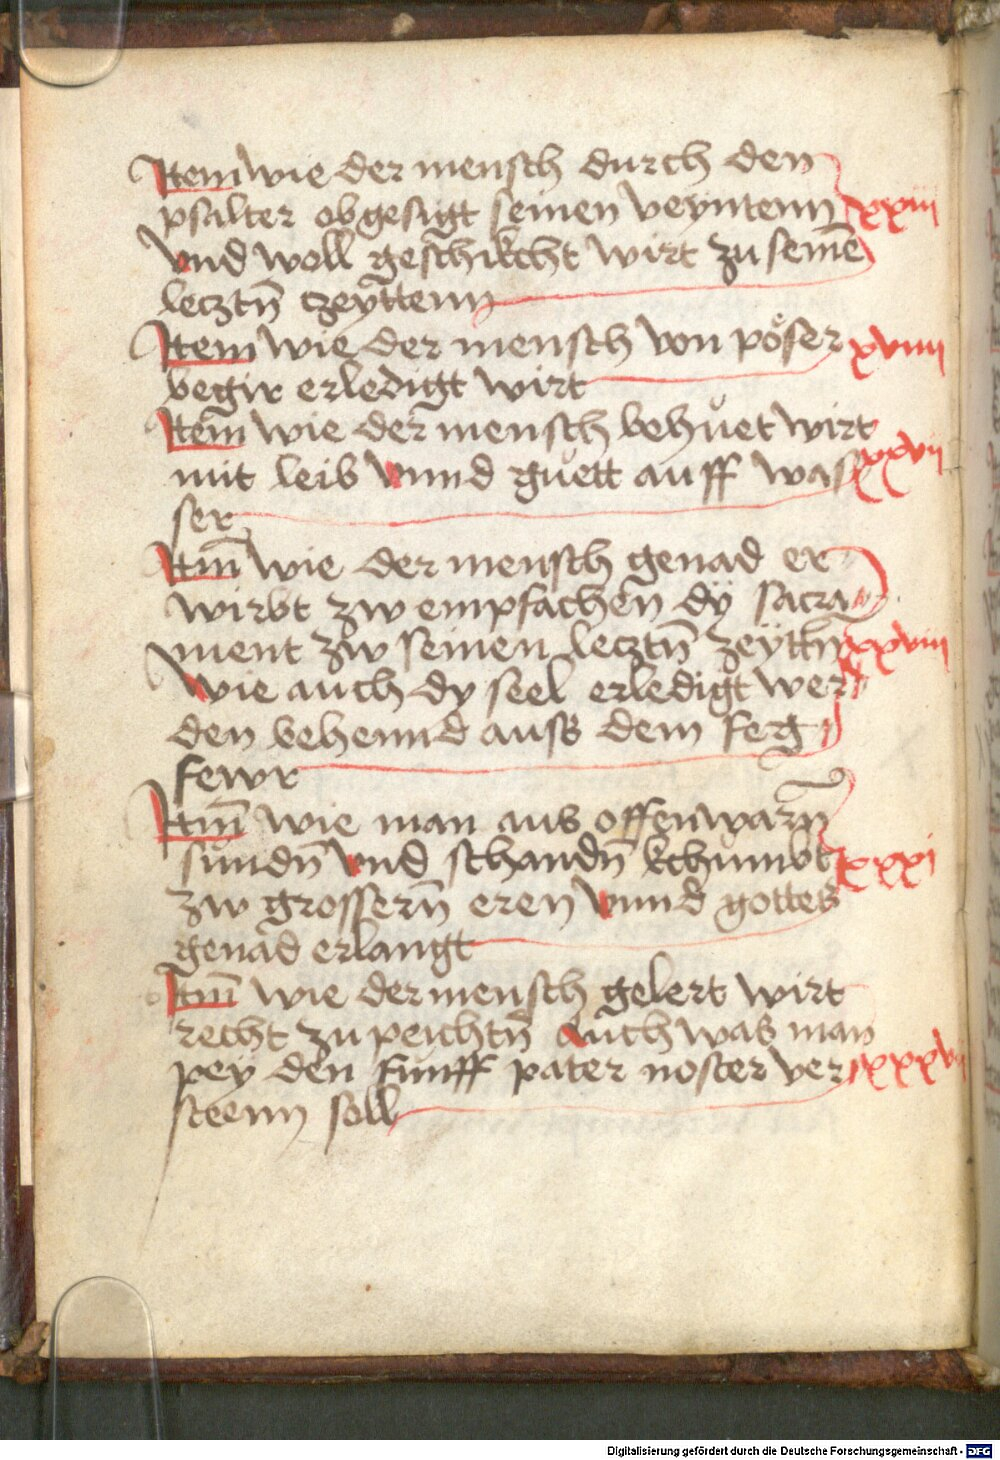 Item wie der mensch durch den
psalter obgesigt seinen veyntenn xxiii
vnd woll geschikcht wirt zu seinē
lecztn̄ czeyttenn
Item wie der mensch von pöser xviiii
begir erledigt wirt
Itēm wie der mensch behůet wirt
mit leib vnnd gůett auff was xxvii
ser
Itm̄ wie der mensch genad er
wirbt zw empfachen dÿ sacra
ment zw seinen lecztn̄ zeyttn̄ xxviii
wie auch dy seel erledigt wer
den behennd auss dem feg
fewr
Itm̄ wie man aus offenwarn̄
sundn̄ vnd schandn̄ kchumbt xxxi
zw grossern̄ eren vnnd gottes
genad erlangt
Itm̄ wie der mensch gelert wirt
recht zu peichtn̄ Auch was man
pey den funff pater noster ver xxxv
steenn soll
Digitalisierung gefördert durch die Deutsche Forschungsgemeinschaft - DFG